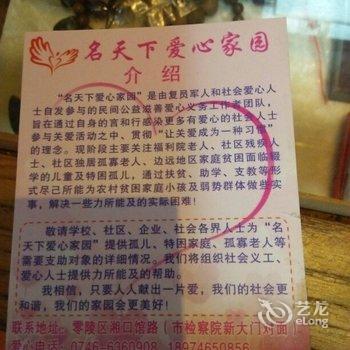 名天下爱心家园
介 绍
“名天下爱心家园”是由复员军人和社会爱心人
士自发参与的民间公益滋善爱心义务工作者团队，
旨在通过自身的言和行感染更多有爱心的社会人士
参与关爱活动之中、贯彻“让关爱成为一种习惯”
的理念。现阶段主要关注福利院老人、社区残疾人
士、社区独居孤寡老人、边远地区家庭贫困面临辍
学的儿童及特困孤儿，通过扶贫、助学、支教等形
式尽己所能为农村贫困家庭小孩及弱势群体做些实
事，解决一些力所能及的实际困难！
敬请学校、社区、企业、社会各界人士为“名
天下爱心家园”提供孤儿、特困家庭、孤寡老人等
需要支助对象的详细情况。我们将组织社会义工、
爱心人士提供力所能及的帮助。
我相信，只要人人献出一片爱，我们的社会更
和谐，我们的家园会更美好！
联系地址：零陵区湘口馆路（市检察院新大门对面）
爱心电话：0746-6360908 18974650856
艺龙
eLong